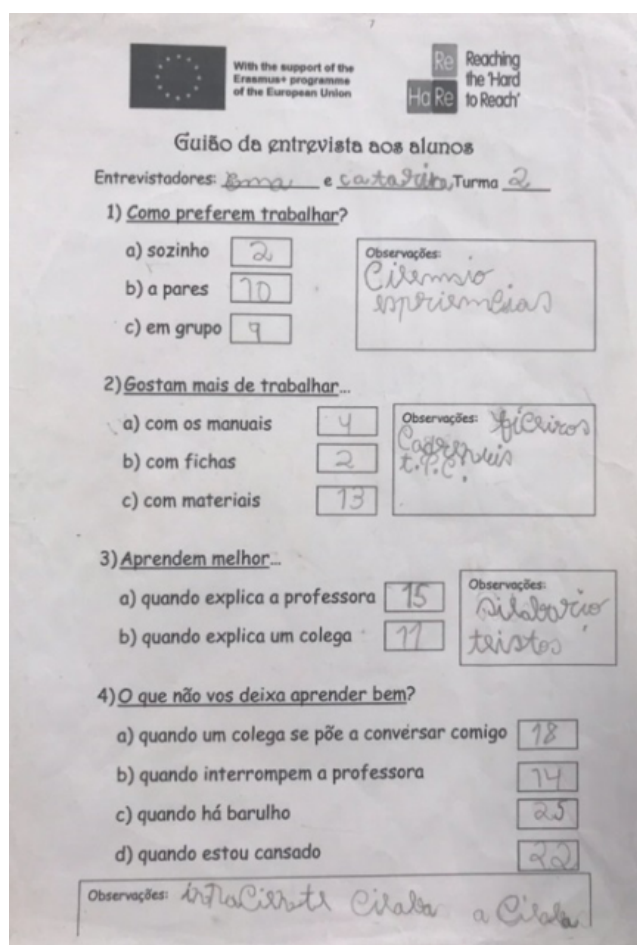 With the support of the
Erasmus+ programme
of the European Union
Re Reaching
the 'Hard
Ha Re to Reach'
Guião da entrevista aos alunos
Entrevistadores: Ema e Catarina, Turma 2
1) Como preferem trabalhar?
a) sozinho 2
b) a pares 10
c) em grupo 9
Observações:
Cilemsio
espriemcias
2) Gostam mais de trabalhar...
a) com os manuais 4
b) com fichas 2
c) com materiais 13
Observações: ficeiros
t.P.C.
3) Aprendem melhor...
a) quando explica a professora 15
b) quando explica um colega 11
Observações:
silabario
teistos
4) O que não vos deixa aprender bem?
a) quando um colega se põe a conversar comigo 18
b) quando interrompem a professora 14
c) quando há barulho 25
d) quando estou cansado 22
Observações: Cilaba a Cilaba